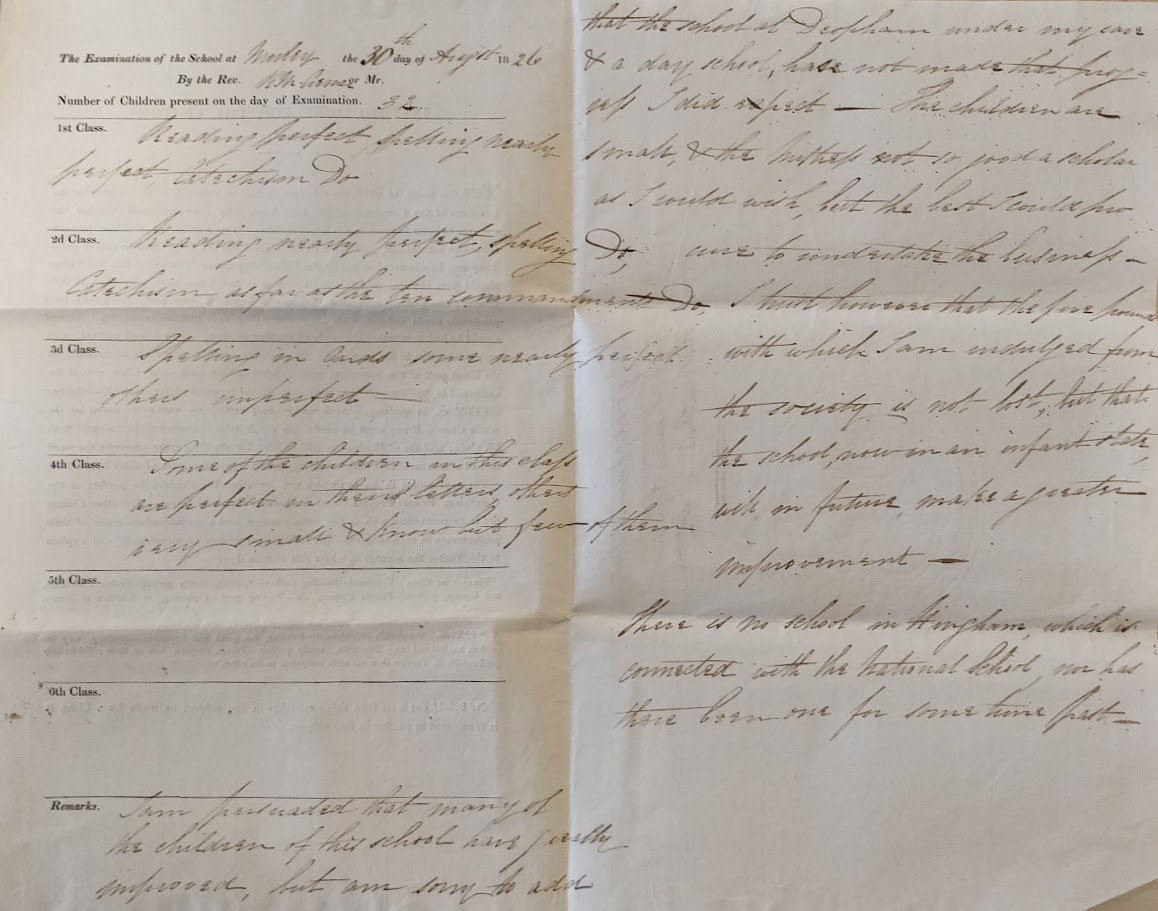 The Examination of the School at Morley the 30th day of August 1826
By the Rev. or Mr.
Number of Children present on the day of Examination. 32
1st Class. Reading perfect, spelling nearly
perfect, Catechism Do
2d Class. Reading nearly perfect, spelling Do,
Catechism as far as the ten commandments Do,
3d Class. Spelling in Cards some nearly perfect
others imperfect —
4th Class. Some of the children in this class
are perfect in their letters, others
very small & know but few of them
5th Class.
6th Class.
Remarks. I am persuaded that many of
the children of this school have greatly
improved, but am sorry to add
that the school at Deopham under my care
& a day school, have not made that prog=
ress I did expect — The children are
small, & the Mistress not so good a scholar
as I could wish, but the best I could pro
cure to undertake the business —
I trust however that the five pound
with which I am indulged from
the society is not lost, but that
the school, now in an infant state,
will, in future, make a greater
improvement —
There is no school in Hingham, which is
connected with the National School, nor has
there been one for some time past —